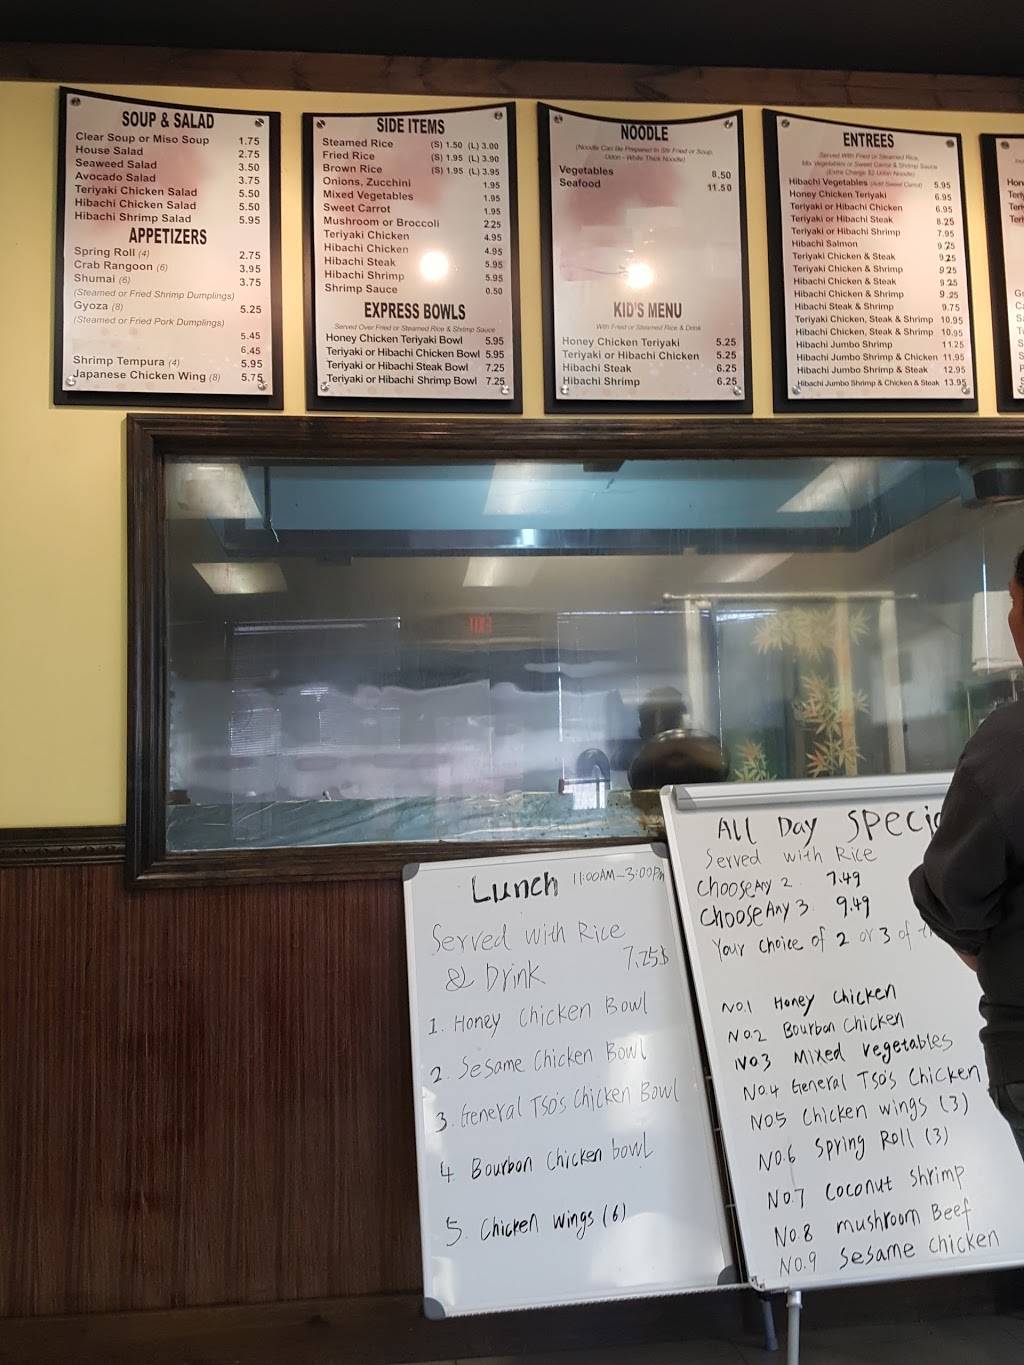 SOUP & SALAD
Clear Soup or Miso Soup 1.75
House Salad 2.75
Seaweed Salad 3.50
Avocado Salad 3.75
Teriyaki Chicken Salad 5.50
Hibachi Chicken Salad 5.50
Hibachi Shrimp Salad 5.95
APPETIZERS
Spring Roll (4) 2.75
Crab Rangoon (6) 3.95
Shumai (6) 3.75
(Steamed or Fried Shrimp Dumplings)
Gyoza (8) 5.25
(Steamed or Fried Pork Dumplings)
5.45
6.45
Shrimp Tempura (4) 5.95
Japanese Chicken Wing (8) 5.75
SIDE ITEMS
Steamed Rice (S) 1.50 (L) 3.00
Fried Rice (S) 1.95 (L) 3.90
Brown Rice (S) 1.95 (L) 3.95
Onions, Zucchini 1.95
Mixed Vegetables 1.95
Sweet Carrot 1.95
Mushroom or Broccoli 2.25
Teriyaki Chicken 4.95
Hibachi Chicken 4.95
Hibachi Steak 5.95
Hibachi Shrimp 5.95
Shrimp Sauce 0.50
EXPRESS BOWLS
Served Over Fried or Steamed Rice & Shrimp Sauce
Honey Chicken Teriyaki Bowl 5.95
Teriyaki or Hibachi Chicken Bowl 5.95
Teriyaki or Hibachi Steak Bowl 7.25
Teriyaki or Hibachi Shrimp Bowl 7.25
NOODLE
(Noodle Can Be Prepared In Stir Fried or Soup,
Udon - White Thick Noodle)
Vegetables 8.50
Seafood 11.50
KID'S MENU
With Fried or Steamed Rice & Drink
Honey Chicken Teriyaki 5.25
Teriyaki or Hibachi Chicken 5.25
Hibachi Steak 6.25
Hibachi Shrimp 6.25
ENTREES
Served With Fried or Steamed Rice,
Mix Vegetables or Sweet Carrot & Shrimp Sauce
(Extra Charge $2 Udon Noodle)
Hibachi Vegetables (Add Sweet Carrot) 5.95
Honey Chicken Teriyaki 6.95
Teriyaki or Hibachi Chicken 6.95
Teriyaki or Hibachi Steak 8.25
Teriyaki or Hibachi Shrimp 7.95
Hibachi Salmon 9.25
Teriyaki Chicken & Steak 9.25
Teriyaki Chicken & Shrimp 9.25
Hibachi Chicken & Steak 9.25
Hibachi Chicken & Shrimp 9.25
Hibachi Steak & Shrimp 9.75
Teriyaki Chicken, Steak & Shrimp 10.95
Hibachi Chicken, Steak & Shrimp 10.95
Hibachi Jumbo Shrimp 11.25
Hibachi Jumbo Shrimp & Chicken 11.95
Hibachi Jumbo Shrimp & Steak 12.95
Hibachi Jumbo Shrimp & Chicken & Steak 13.95
Lunch 11:00AM-3:00PM
Served with Rice
& Drink 7.25$
1. Honey Chicken Bowl
2. Sesame Chicken Bowl
3. General TSO'S Chicken Bowl
4. Bourbon Chicken bowl
5. Chicken wings (6)
All Day Specia
Served with Rice
Choose Any 2. 7.49
Choose Any 3. 9.49
Your choice of 2 or 3 of
NO.1 Honey Chicken
NO.2 Bourbon Chicken
NO.3 Mixed Vegetables
NO.4 General TSO'S Chicken
NO5 Chicken wings (3)
NO.6 Spring Roll (3)
NO.7 Coconut Shrimp
NO.8 mushroom Beef
NO.9 Sesame Chicken